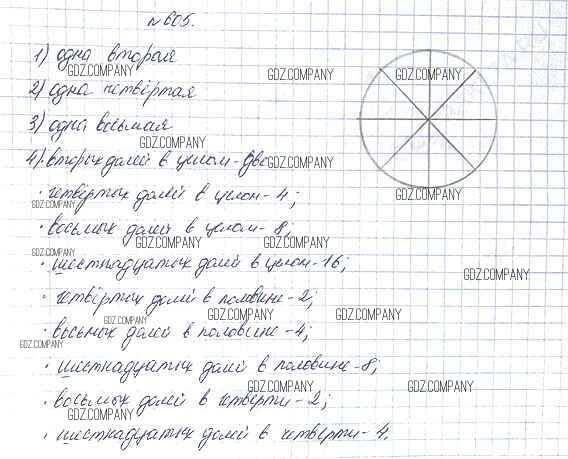 № 605.
1) одна вторая
GDZ.COMPANY GDZ.COMPANY GDZ.COMPANY
2) одна четвёртая
3) одна восьмая
GDZ.COMPANY
4) · вторых долей в целом - две
GDZ.COMPANY
· четвёртых долей в целом - 4;
GDZ.COMPANY GDZ.COMPANY
· восьмых долей в целом - 8;
GDZ.COMPANY GDZ.COMPANY
GDZ.COMPANY
· шестнадцатых долей в целом - 16;
GDZ.COMPANY
· четвёртых долей в половине - 2;
GDZ.COMPANY GDZ.COMPANY GDZ.COMPANY
· восьмых долей в половине - 4;
GDZ.COMPANY
· шестнадцатых долей в половине - 8;
GDZ.COMPANY GDZ.COMPANY
· восьмых долей в четверти - 2;
GDZ.COMPANY
· шестнадцатых долей в четверти - 4.